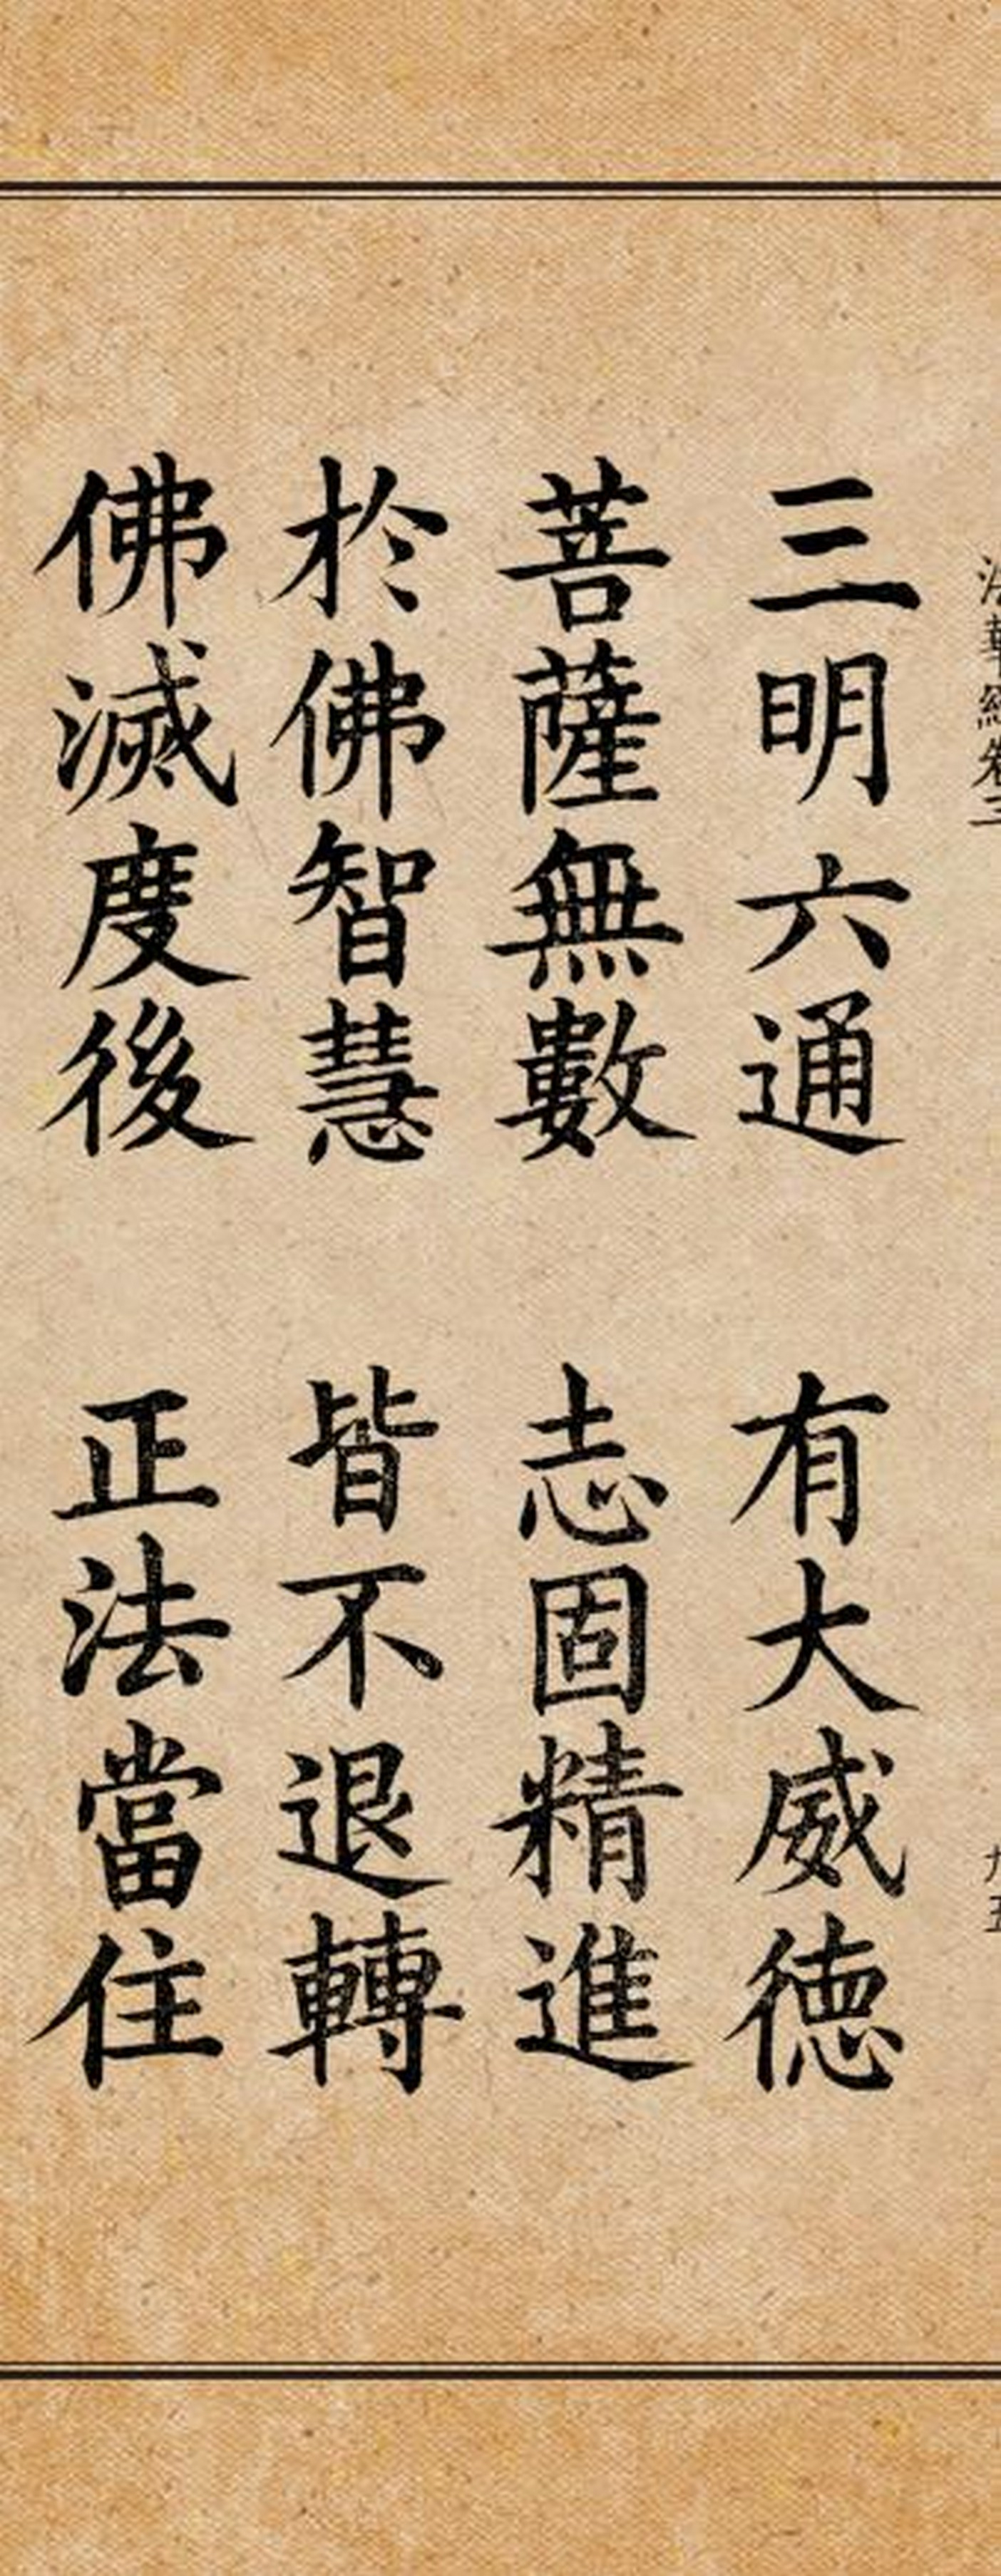 法華經卷三
九五
三明六通 有大威德
菩薩無數 志固精進
於佛智慧 皆不退轉
佛滅度後 正法當住